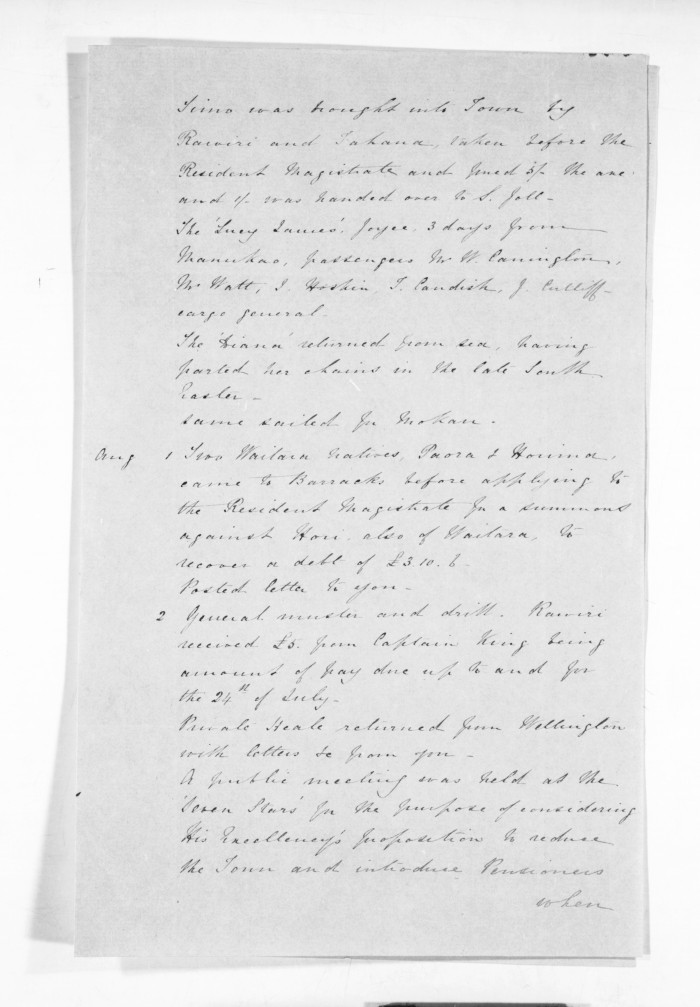 Simo was brought into Town by
Rawiri and Tahana, taken before the
Resident Magistrate and fined 5/- the axe
and 1/- was handed over to S. Joll-
The 'Lucy James', Joyce, 3 days from
Manukao, passengers Mr W. Carrington,
Mr Watt, J. Hoskin, T. Candish, J. Cutliff-
cargo general.
The 'Diana' returned from sea, having
parted her chains in the late South
Easter-
same sailed for Mokau.
Aug 1 Two Waitara natives, Paora & Horima,
came to Barracks before applying to
the Resident Magistrate for a summons
against Hori, also of Waitara, to
recover a debt of £3.10.6.
Posted letter to you-
2 General muster and drill. Rawiri
received £5. from Captain King being
amount of pay due up to and for
the 24th of July-
Private Heale returned from Wellington
with letters &c from you-
A public meeting was held at the
'Seven Stars' for the purpose of considering
His Excellency's proposition to reduce
the Town and introduce Pensioners
when